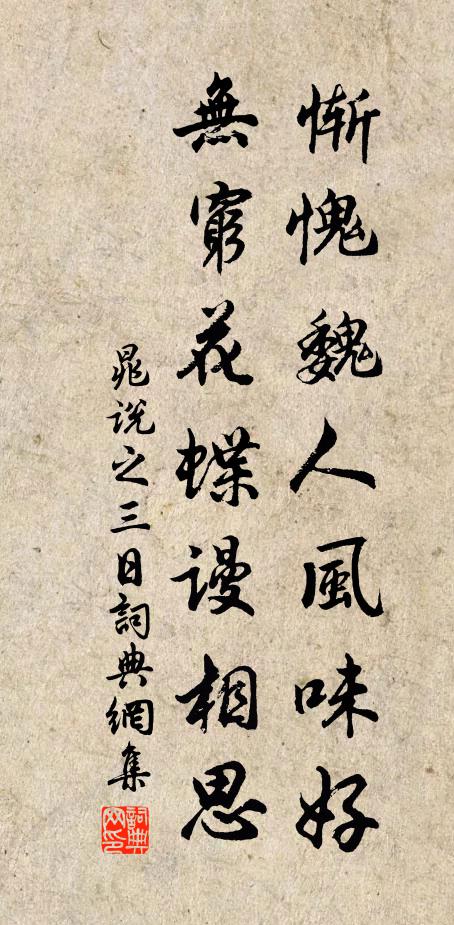 惭愧魏人風味好
無窮花蝶謾相思
晁説之三日詞典網集
詞典网印